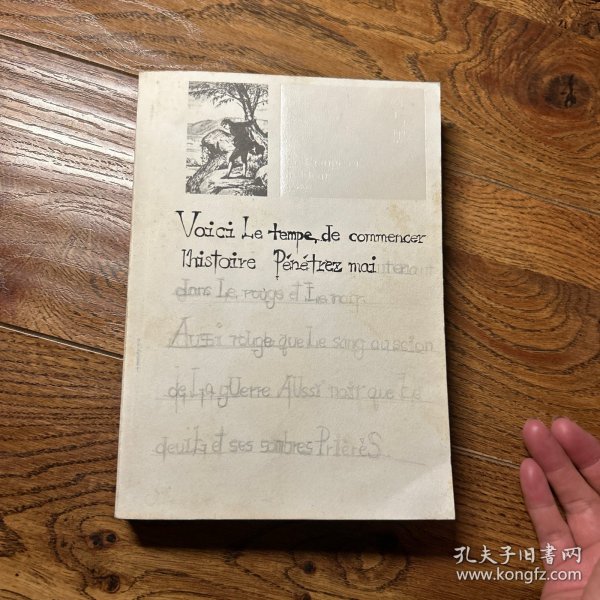 Voici Le tempe, de commencer
l'histoire Pénétrez moi
tenant
dans Le rouge et Le noir.
Aussi rouge que Le sang au selon
de La guerre Aussi noir que Le
deuil, et ses sombres PrièrèS
孔夫子旧书网
www.kongfz.com